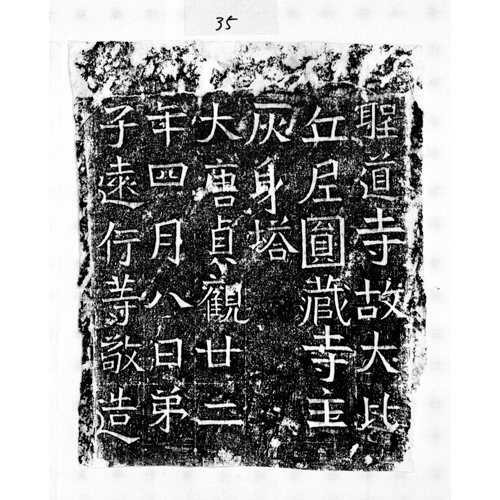 35
聖道寺故大比
丘尼圓藏寺主
灰身塔
大唐貞觀廿二
年四月八日弟
子遠行等敬造